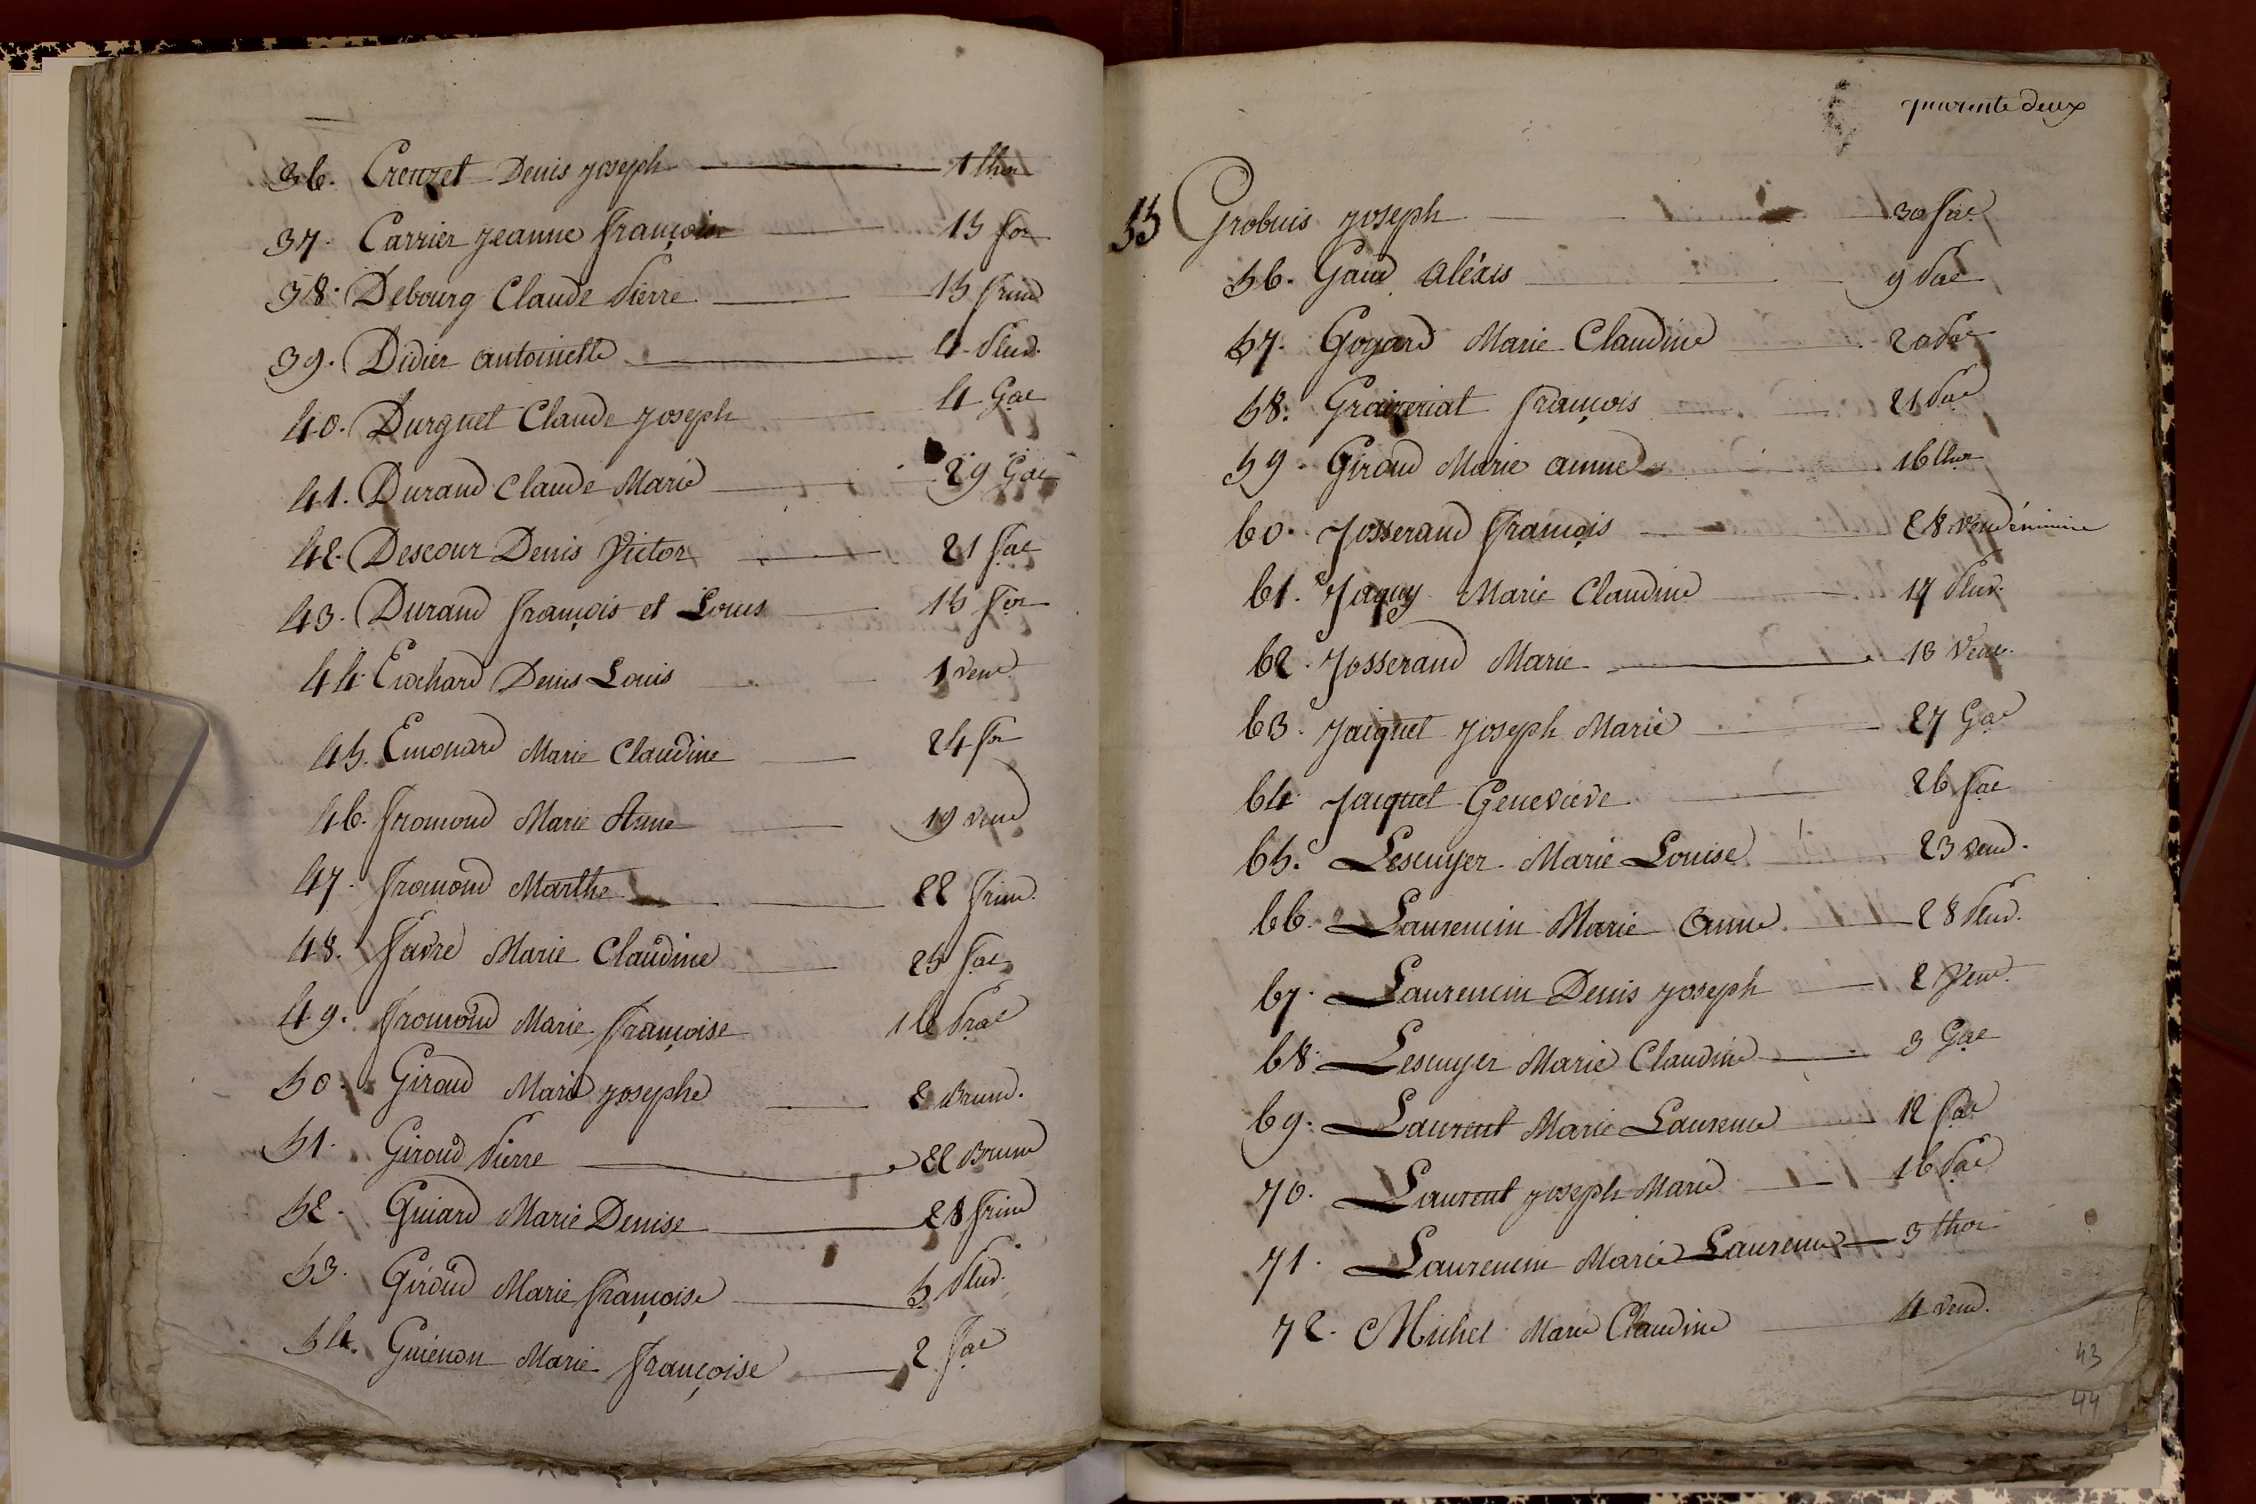 36. Creuzet Denis Joseph 1 ther
37. Carrier Jeanne françoise 15 flor
38. Debourg Claude Pierre 15 frim
39. Didier antoinette 4 Pluv.
40. Durguet Claude Joseph 4 Gal
41. Durand Claude Marie 29 Gal
42. Descour Denis Victor 21
43. Durand françois et Louis 15
44. Erochard Denis Louis 1 vent
45. Emonard Marie Claudine 24
46. fromond Marie Anne 19 vend
47. fromond Marthe 22 frim.
48. favre Marie Claudine 25
49. fromond Marie françoise 16 Pral
50. Giroud Marie Josephe 2 Brum.
51. Giroud Pierre 22 Brum
52. Guiard Marie Denise 28 frim
53. Giroud Marie françoise 5 Pluv.
54. Guienon Marie françoise 2
quarente deux
55 Grobuis Joseph 30
56. Gaud Aléxis 9
57. Goyard Marie Claudine 20
58. Graizeriat françois 21
59. Giroud Marie anne 16 ther
60. Josserand françois 28 vendémiaire
61. Jaguy Marie Claudine 17 Pluv.
62. Josserand Marie 13 Vent.
63. Jaiquet Joseph Marie 27 Gal
64 Jaiquet Geneviève 26
65. Lescuyer Marie Louise 23 vend.
66. Laurencin Marie Anne 28 Pluv.
67. Laurencin Denis Joseph 2 Vent.
68. Lescuyer Marie Claudine 3 Gal
69. Laurent Marie Laurence 12
70. Laurent Joseph Marie 16
71. Laurencin Marie Laurence 3 ther
72. Michel Marie Claudine 4 vend.
43
44